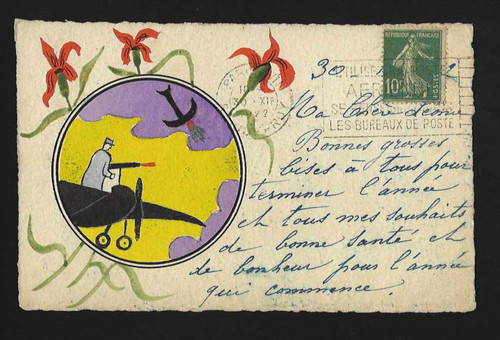 REPUBLIQUE FRANÇAISE
10
POSTES
30
PARIS
XII
UTILISEZ
LES BUREAUX DE POSTE
Ma Chère
Bonnes grosses
bises à tous pour
terminer l'année
et tous mes souhaits
de bonne santé et
de bonheur pour l'année
qui commence.